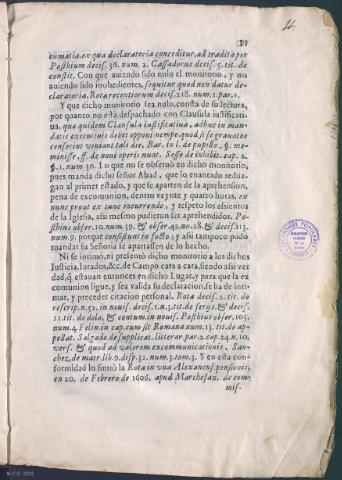 11
tumatia. ex qua declaratoria conceditur, ad tradita per
Posthium decis. 36. num. 2. Cassadorus decis. 5. tit. de
constit. Con que auiendo sido nulo el monitorio, y no
auiendo sido inobedientes, sequitur quod non datur de-
claratoria, Rota recentiorum decis. 218. num. 1. par. 1.
Y que dicho monitorio sea nulo, consta de su lectura,
por quanto no està despachado con Clausula iustificati-
ua, quæ quidem Clausula iustificatiua, adhuc in man-
datis executiuis debet opponi nempe, quod si se grauatos
censerint veniant tali die, Bar. in l. de pupillo, §. me-
minisse, ff. de noui operis nunt. Sesse de inhibit. cap. 2.
§. 1. num. 30. Lo que no se obseruò en dicho monitorio,
pues manda dicho señor Abad, que lo enantado redui-
gan al primer estado, y que se aparten de la aprehension,
pena de excomunion, dentro veynte y quatro horas, ex
nunc prout ex tunc incurrendo, y respeto los assientos
de la Iglesia, assi mesmo pudieron ser aprehendidos, Po-
sthius obser. 10. num. 39. & obser. 42. nu. 28. & decis. 113.
num. 9. porque consistunt in facto; y assi tampoco pudo
mandar su Señoria se apartassen de lo hecho.
Ni se intimò, ni presentò dicho monitorio a los dichos
Iusticia, Iurados, &c. de Campo cara a cara, siendo assi ver
dad, q̃ estauan entonces en dicho Lugar, y para que la ex
comunion ligue, y sea valida su declaracion, se ha de inti-
mar, y preceder citacion personal. Rota decis. 2. tit. de
rescrip. n. 52. in nouis. decis. 1. n. 3. tit. de ferijs, & decis.
11. tit. de dolo, & contum. in nouis. Posthius obser. 103.
num. 4. Felin. in cap. cum sit Romana num. 13. tit. de ap-
pellat. Salgado de supplicat. litterar. par. 2. cap. 24. n. 10.
vers. & quod ad valorem excommunicationis. San-
chez, de matr. lib. 9. disp. 32. num. 3. tom. 3. Y en esta con-
formidad lo sintiò la Rota in vna Alexanens. pensionis,
en 20. de Febrero de 1606. apud Marchesan. de com-
mis.